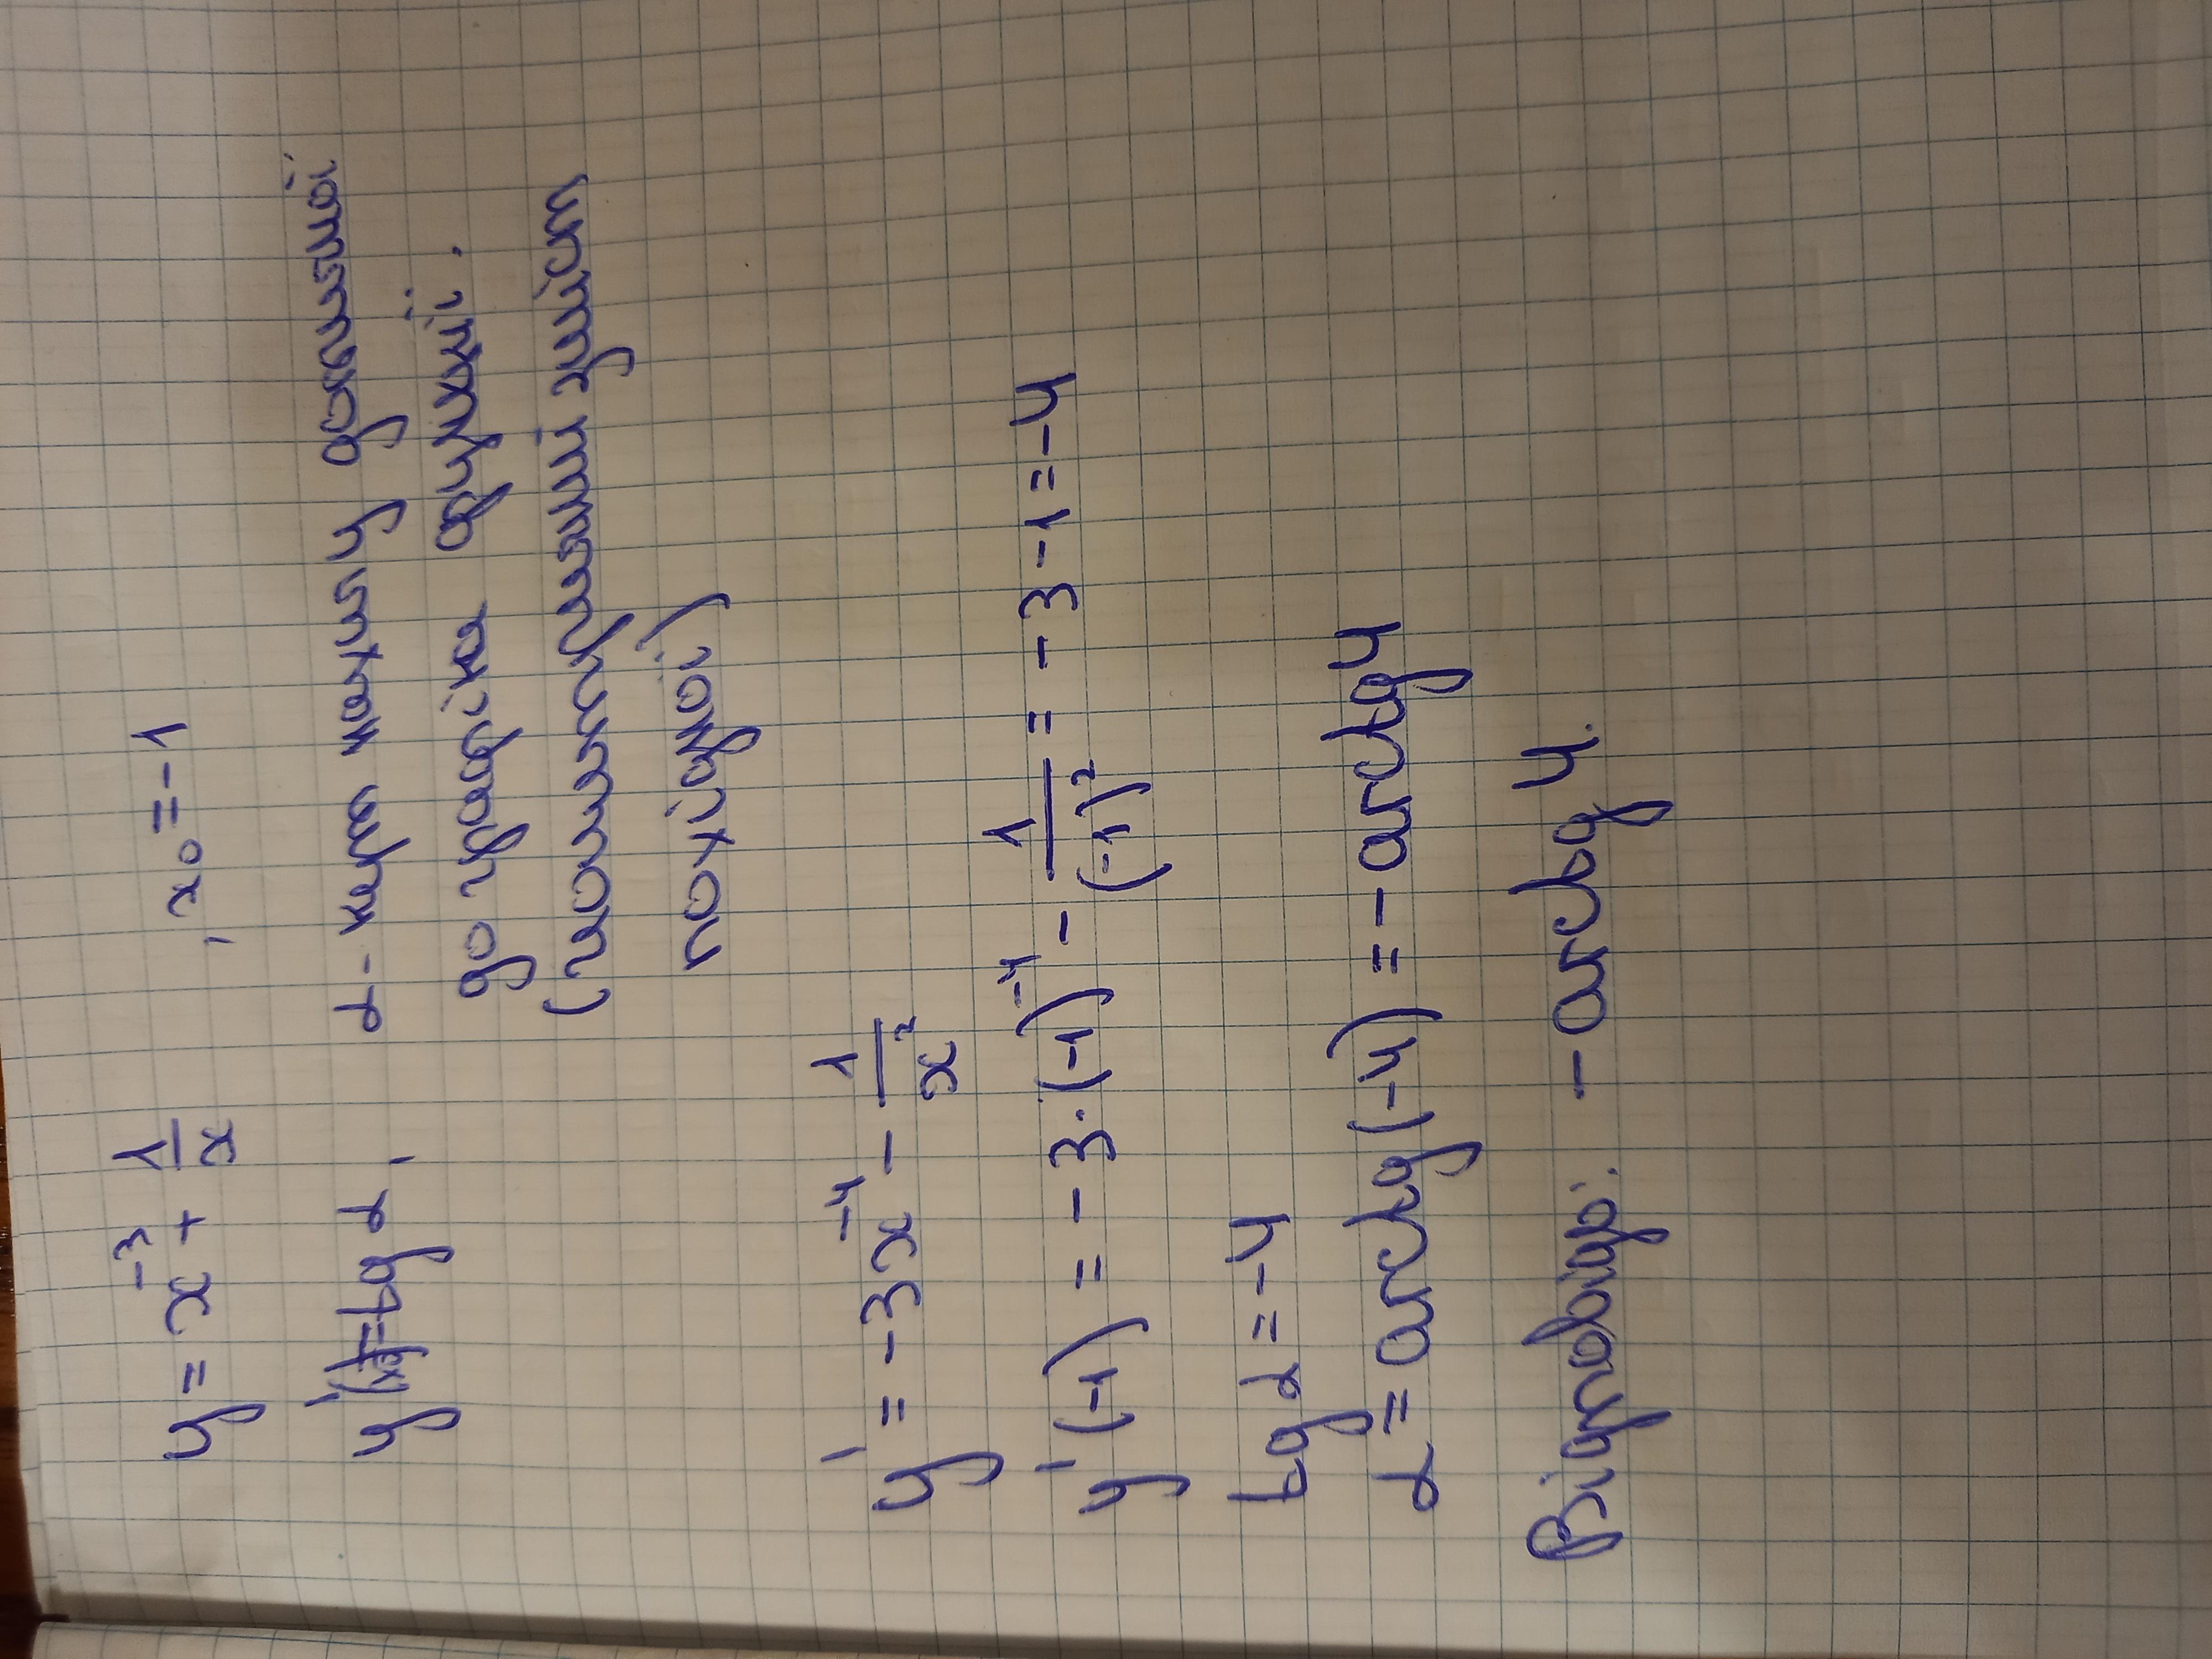 y = x⁻³ + 1/x , x₀ = -1
y'(x₀) = tg α, α - кут нахилу дотичної
до графіка функції.
(геометричний зміст
похідної)
y' = -3x⁻⁴ - 1/x²
y'(-1) = -3·(-1)⁻⁴ - 1/(-1)² = -3-1=-4
tg α = -4
α = arctg(-4) = -arctg4
Відповідь: -arctg 4.